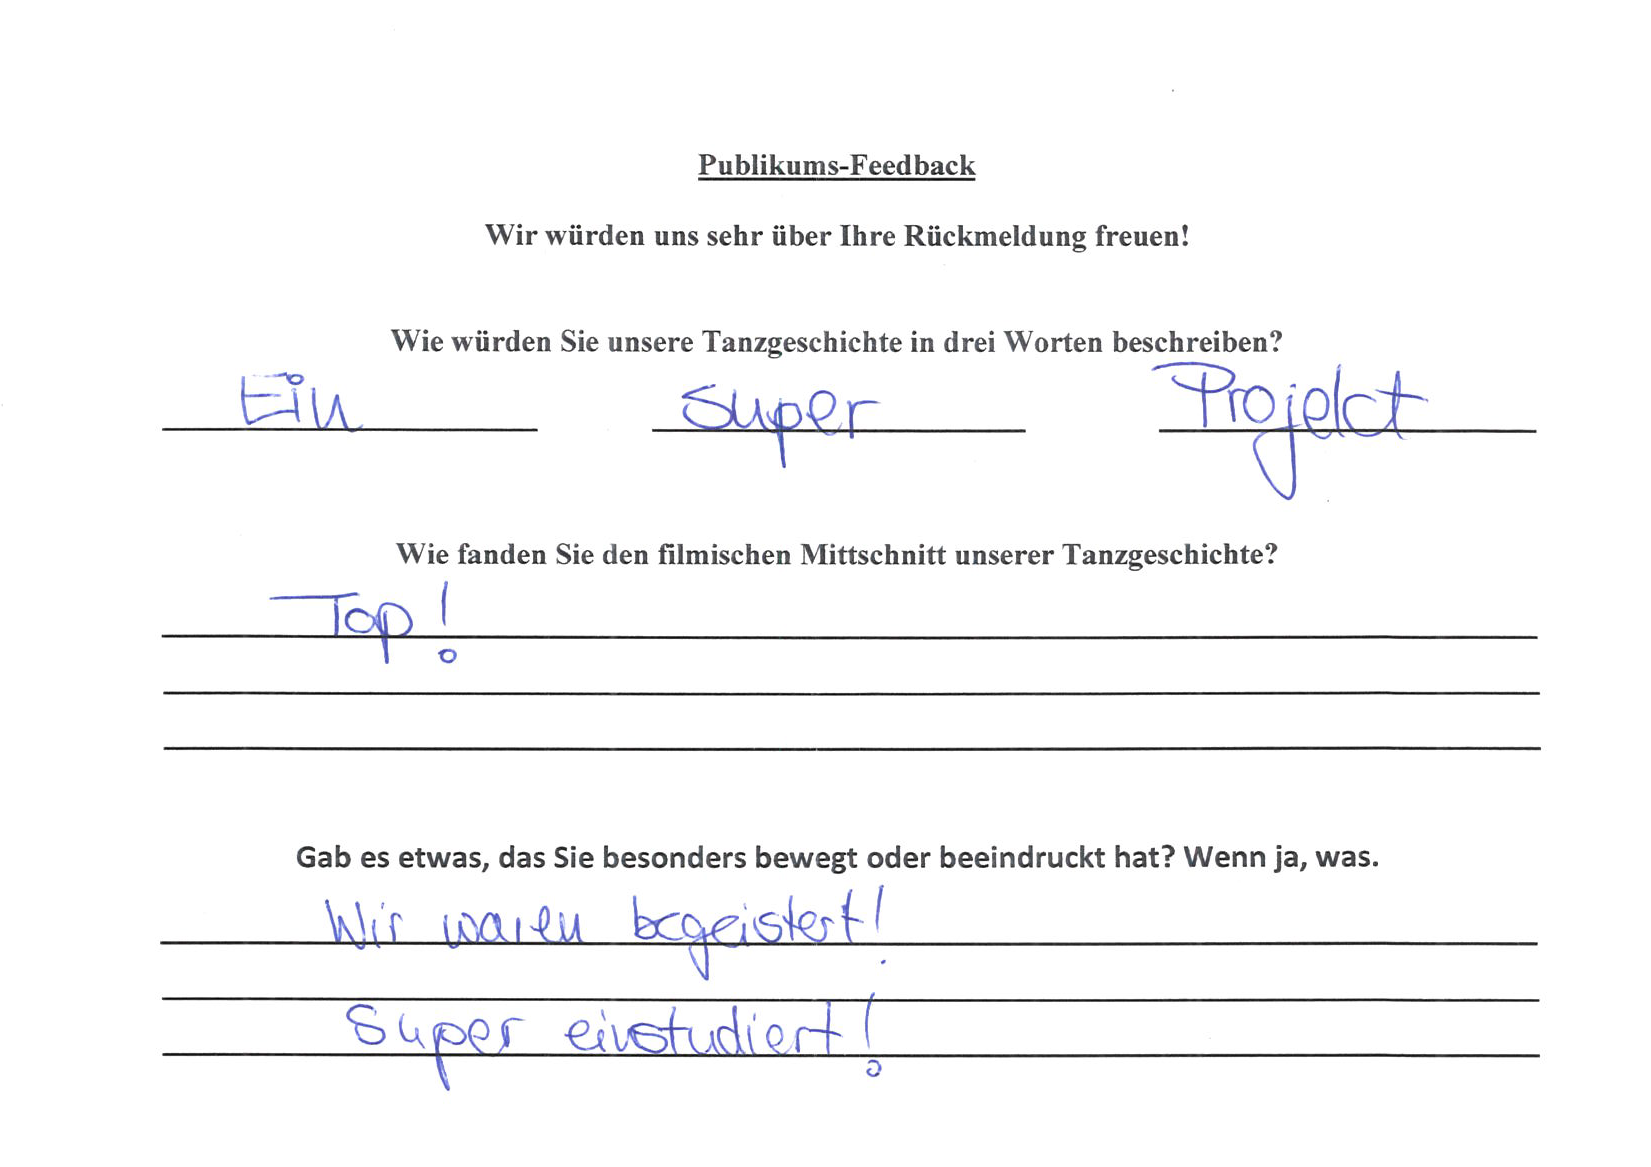 Publikums-Feedback
Wir würden uns sehr über Ihre Rückmeldung freuen!
Wie würden Sie unsere Tanzgeschichte in drei Worten beschreiben?
Ein super Projekt
Wie fanden Sie den filmischen Mittschnitt unserer Tanzgeschichte?
Top!
Gab es etwas, das Sie besonders bewegt oder beeindruckt hat? Wenn ja, was.
Wir waren begeistert!
Super einstudiert!